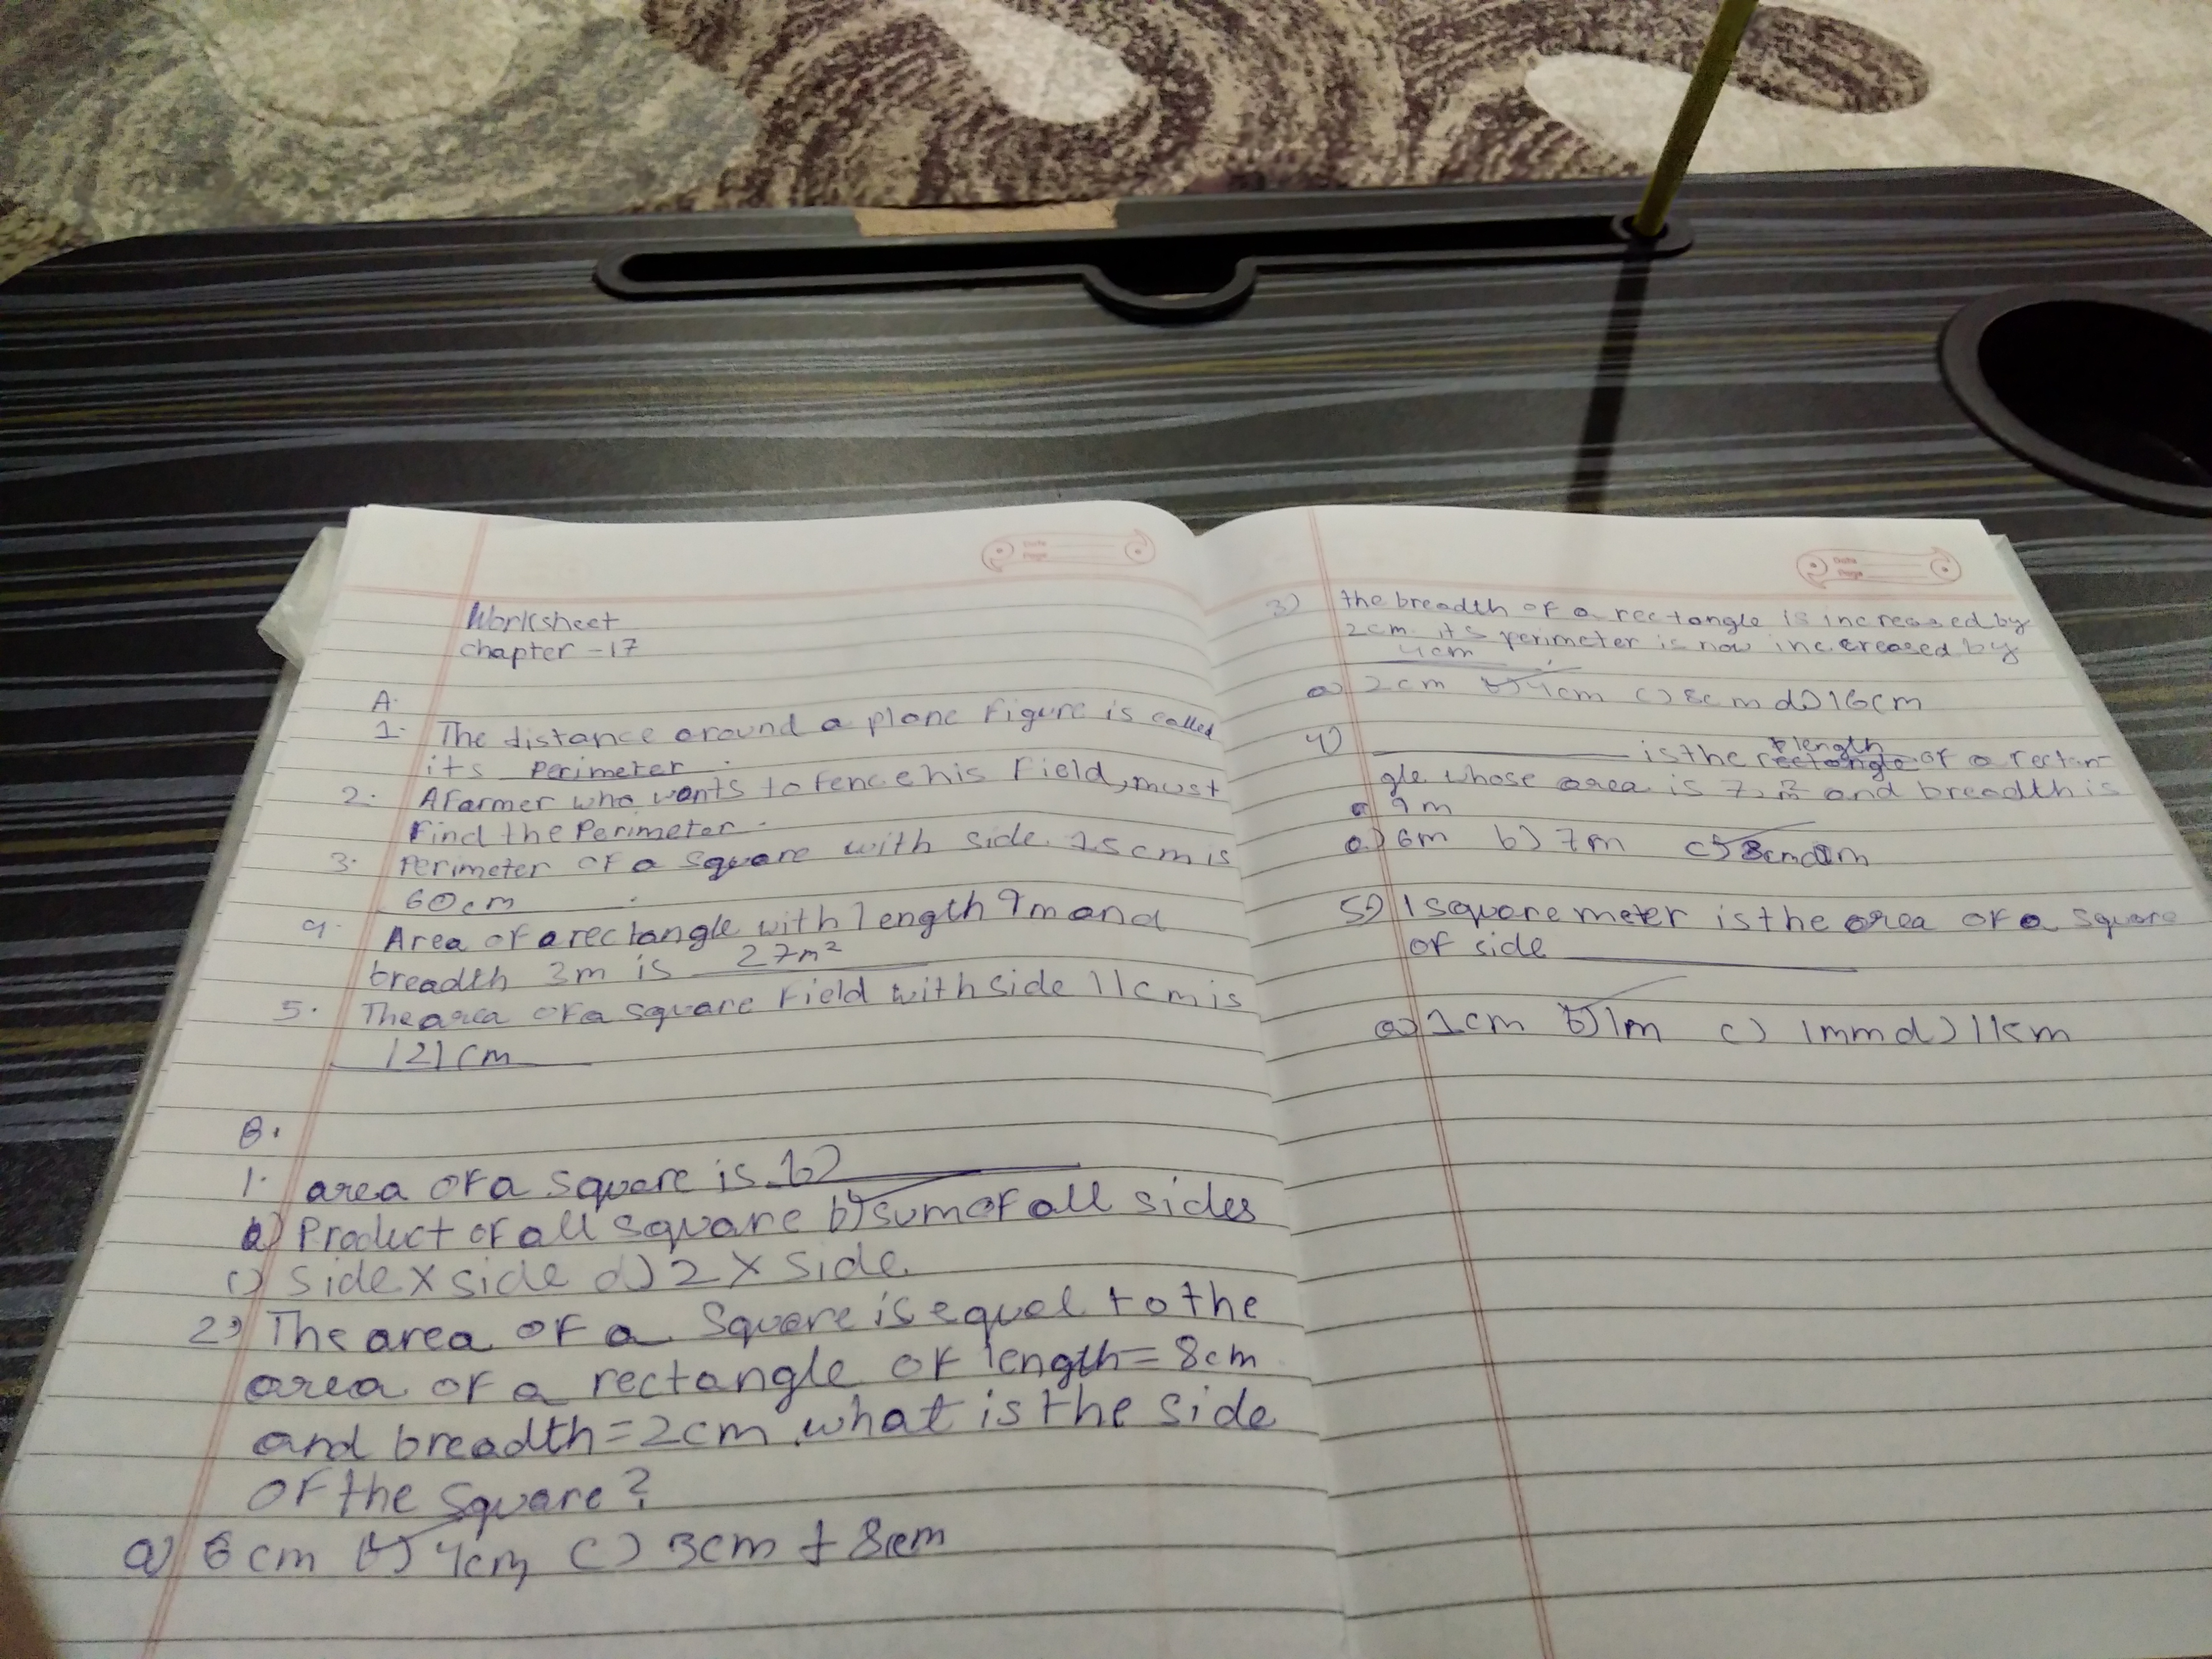 Worksheet
chapter - 17
A.
1. The distance around a plane figure is called
its perimeter.
2. A farmer who wants to fence his field, must
find the Perimeter.
3. Perimeter of a square with side 15cm is
60cm.
4. Area of a rectangle with length 9m and
breadth 3m is 27m²
5. The area of a square field with side 11cm is
121cm
B.
1. area of a square is b)
a) Product of all square b) sum of all sides
c) side x side d) 2 x side
2) The area of a square is equal to the
area of a rectangle of length = 8cm
and breadth = 2cm what is the side
of the square?
a) 6cm b) 4cm c) 3cm 8cm
Date
Page
3) the breadth of a rectangle is increased by
2cm. its perimeter is now increreased by
4cm
a) 2cm b) 4cm c) 8cm d) 16cm
4) is the length of a rectan-
gle whose area is and breadth is
9m
a) 6m b) 7m c)
5) 1 square meter is the area of a square
of side
a) 1cm b) 1m c) 1mm d) 1km
Date
Page